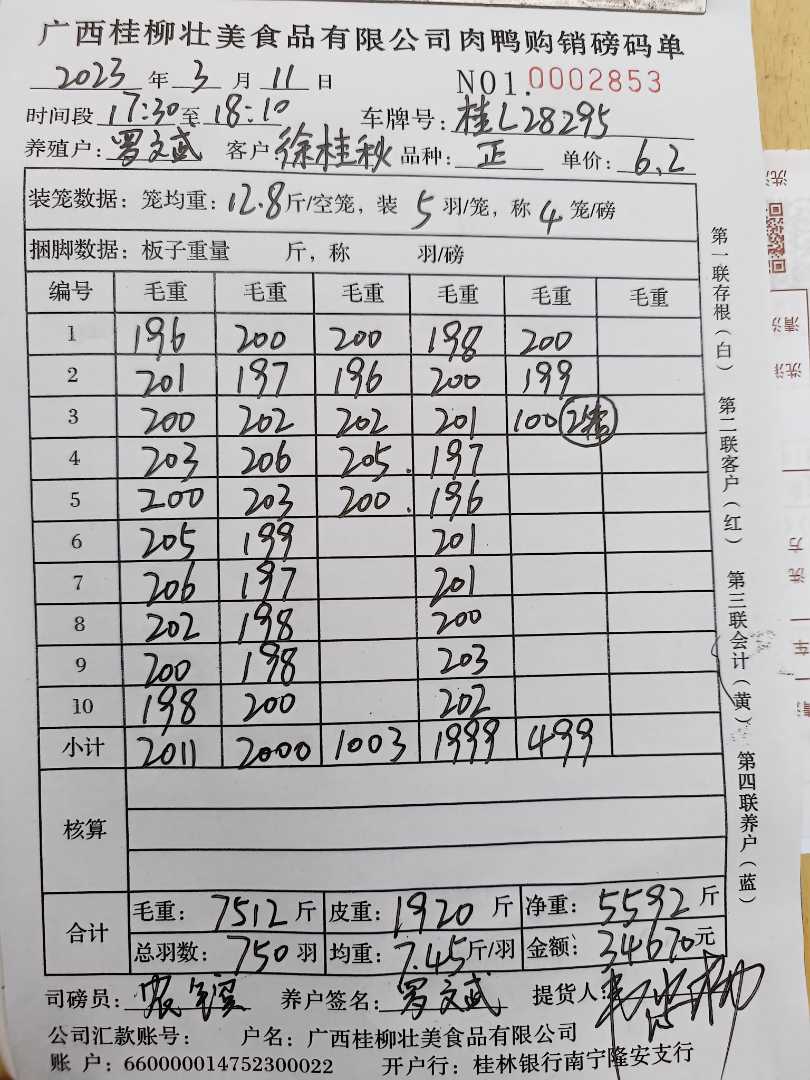 广西桂柳壮美食品有限公司肉鸭购销磅码单
2023 年 3 月 11 日 NO1.0002853
时间段 17:30 至 18:10 车牌号: 桂L28295
养殖户: 罗文武 客户: 徐桂秋 品种: 正 单价: 6.2
装笼数据: 笼均重: 12.8 斤/空笼, 装 5 羽/笼, 称 4 笼/磅
捆脚数据: 板子重量 斤, 称 羽/磅
编号 毛重 毛重 毛重 毛重 毛重 毛重
1 196 200 200 198 200
2 201 197 196 200 199
3 200 202 202 201 100 2笼
4 203 206 205. 197
5 200 203 200. 196
6 205 199 201
7 206 197 201
8 202 198 200
9 200 198 203
10 198 200 202
小计 2011 2000 1003 1999 499
核算
合计
毛重: 7512 斤 皮重: 1920 斤 净重: 5592 斤
总羽数: 750 羽 均重: 7.45 斤/羽 金额: 34670 元
司磅员: 养户签名: 罗文武 提货人:
公司汇款账号: 户名: 广西桂柳壮美食品有限公司
账 户: 660000014752300022 开户行: 桂林银行南宁隆安支行
第一联存根(白) 第二联客户(红) 第三联会计(黄) 第四联养户(蓝)